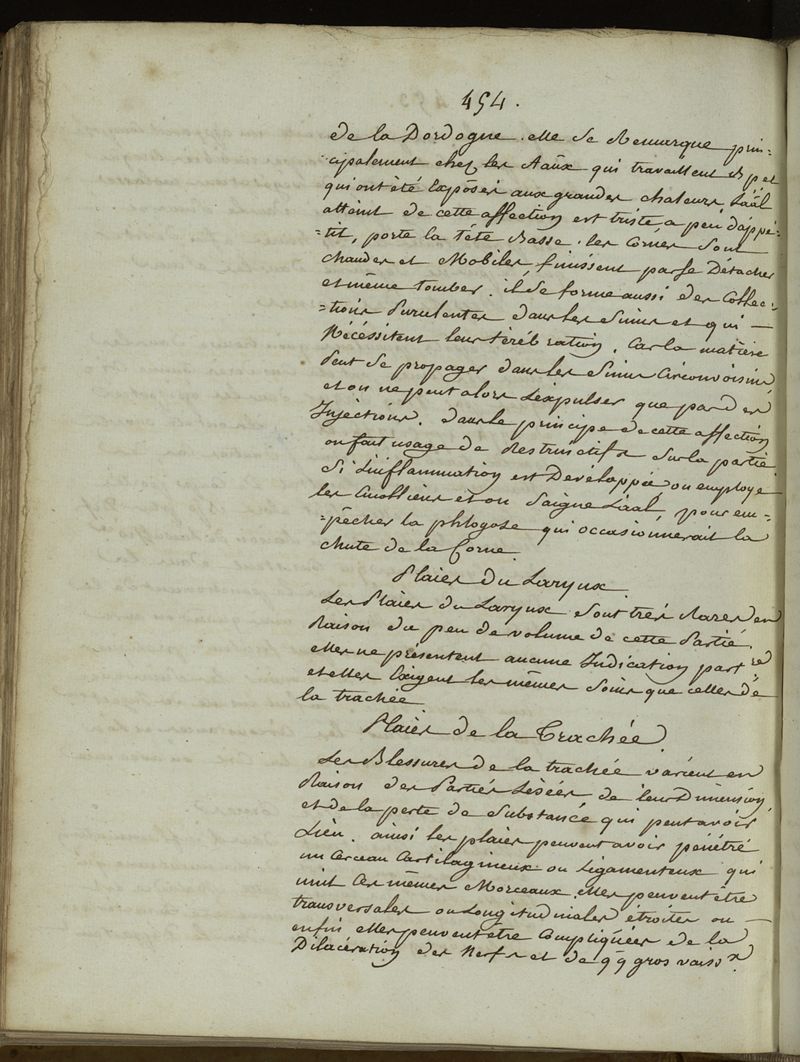 454.
de la Dordogne. elle se Remarque prin-
-cipalement chez les A̅a̅ux qui travaillent Bp et
qui ont été Exposés aux grandes chaleurs, L'a̅a̅l
atteint de cette affection est triste, a peu d'appé-
-tit, porte la tête Basse. les Cornes sont
chaudes et Mobiles, finissent par se Détacher
et même tomber. il se forme aussi des Collec-
-tions purulentes dans les Sinus et qui —
Nécéssitent leur téréb ration, Car la matière
peut se propager dans les Sinus Circonvoisins,
et on ne peut alors L'éxpulser que par des
Injections. dans le principe de cette affection
on fait usage de Restrinctifs sur la partie
Si L'inflammation est Développée, on employe
les émolliens et on Saigne L'aal, pour em-
-pêcher la phlogose qui occasionnerait la
chute de la Corne.
Plaies du Larynx
Les Plaies du Larynx sont très Rares en
Raison du peu de volume de cette Partie.
elles ne présentent aucune Indication part re
et elles Exigent les mêmes Soins que celles de
la trachée
Plaies de la Trachée.
Les Blessures de la trachée varient en
Raison des Parties Lésées de leur Dimension,
et de la perte de Substance qui peut avoir
Lieu. ainsi les plaies peuvent avoir pénétré
un Cerceau Cartilagineux ou Ligamenteux qui
unit Ces mêmes Morceaux. elles peuvent être
transversales ou Longitudinales étroites ou —
enfin elles peuvent être Compliquées de la
Dilacération des Nerfs et de qq gros vaiss x.